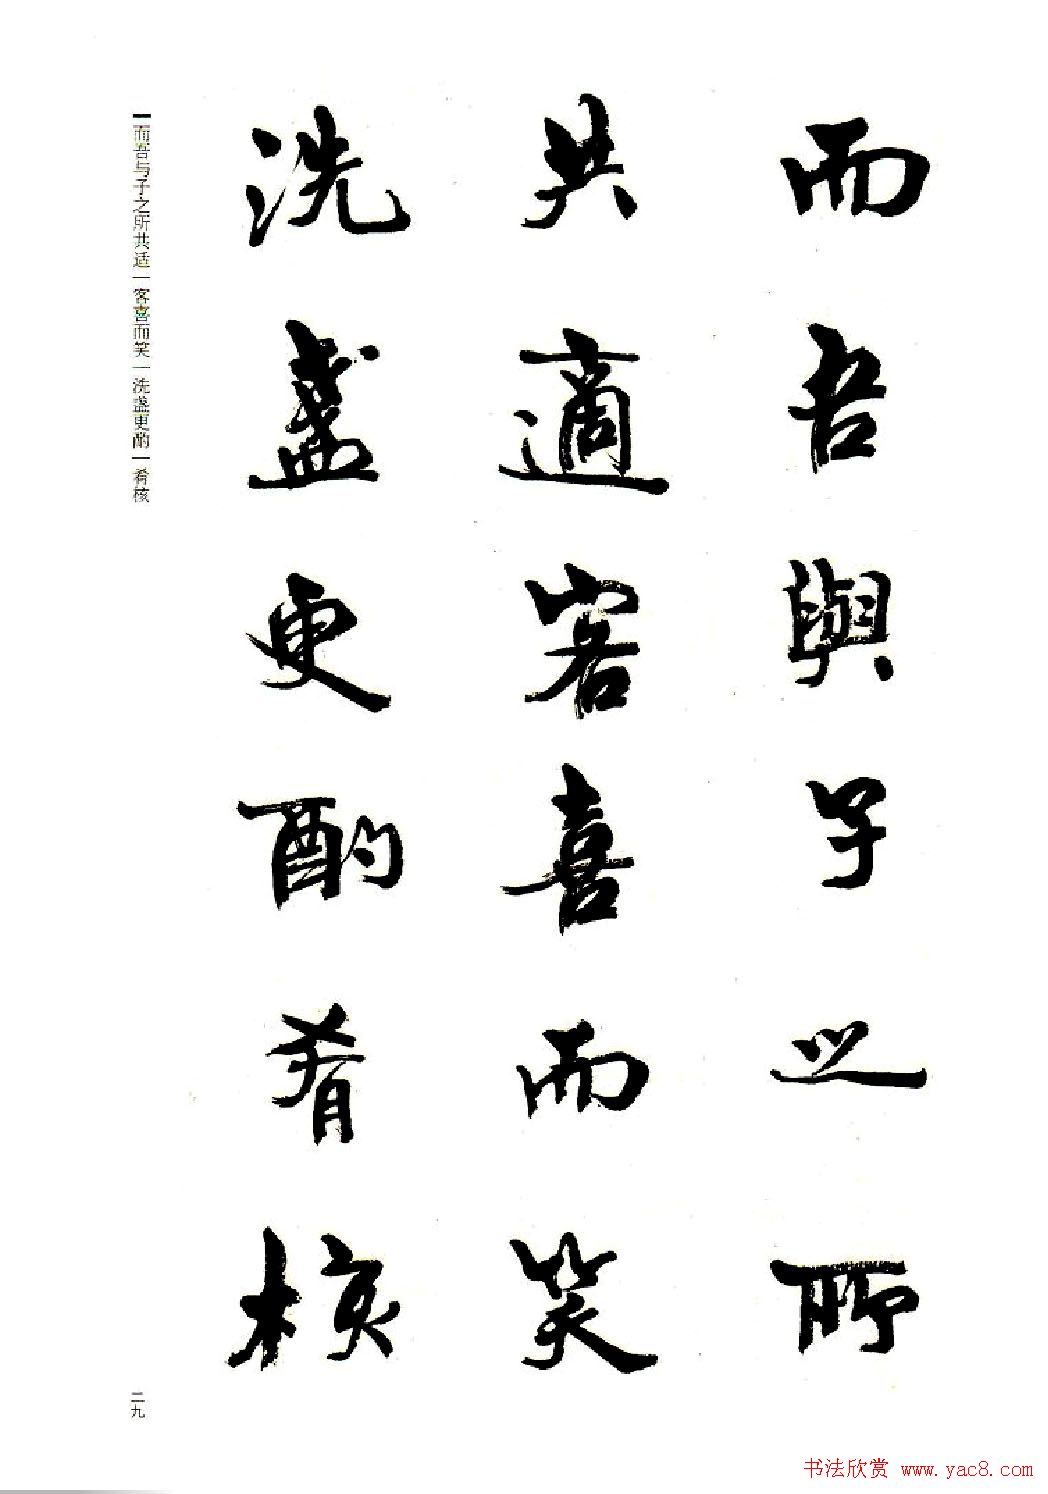 而吾與子之所
共適客喜而笑
洗盞更酌肴核
而吾与子之所共适｜客喜而笑｜洗盏更酌｜肴核
二九
书法欣赏 www.yac8.com